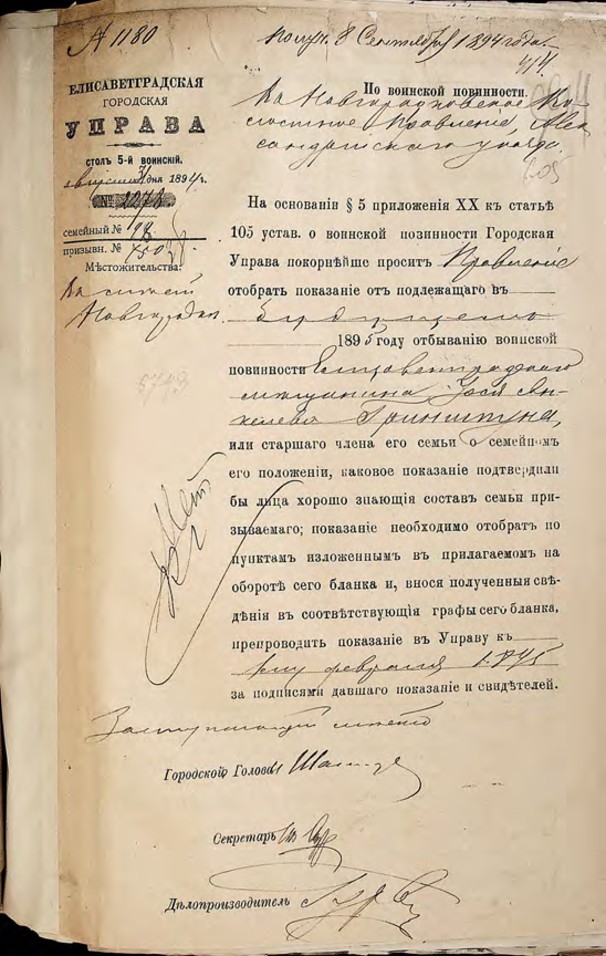 № 1180
Получ. 8 Сентября 1894 года.
ЕЛИСАВЕТГРАДСКАЯ
ГОРОДСКАЯ
УПРАВА
СТОЛЪ 5-й ВОИНСКІЙ.
августа 31 дня 1894 г.
№ 2278
семейный № 98
призывн. №
Мѣстожительства:
По воинской повинности.
Въ Новгородковское Во-
лостное Правленіе, Алек-
сандрійскаго уѣзда.
На основаніи § 5 приложенія XX къ статьѣ
105 устав. о воинской позинности Городская
Управа покорнѣйше проситъ Правленіе
отобрать показаніе отъ подлежащаго въ
будущемъ
1895 году отбыванію воинской
повинности Елисаветградскаго
мѣщанина
Гринштуна,
или старшаго члена его семьи о семейномъ
его положеніи, каковое показаніе подтвердили
бы лица хорошо знающія составъ семьи при-
зываемаго; показаніе необходимо отобрать по
пунктамъ изложеннымъ въ прилагаемомъ на
оборотѣ сего бланка и, внося полученныя свѣ-
дѣнія въ соотвѣтствующія графы сего бланка,
препроводить показаніе въ Управу къ
1му февраля 1895
за подписями давшаго показаніе и свидѣтелей.
Заступающій мѣсто
Городской Головы
Секретарь
Дѣлопроизводитель